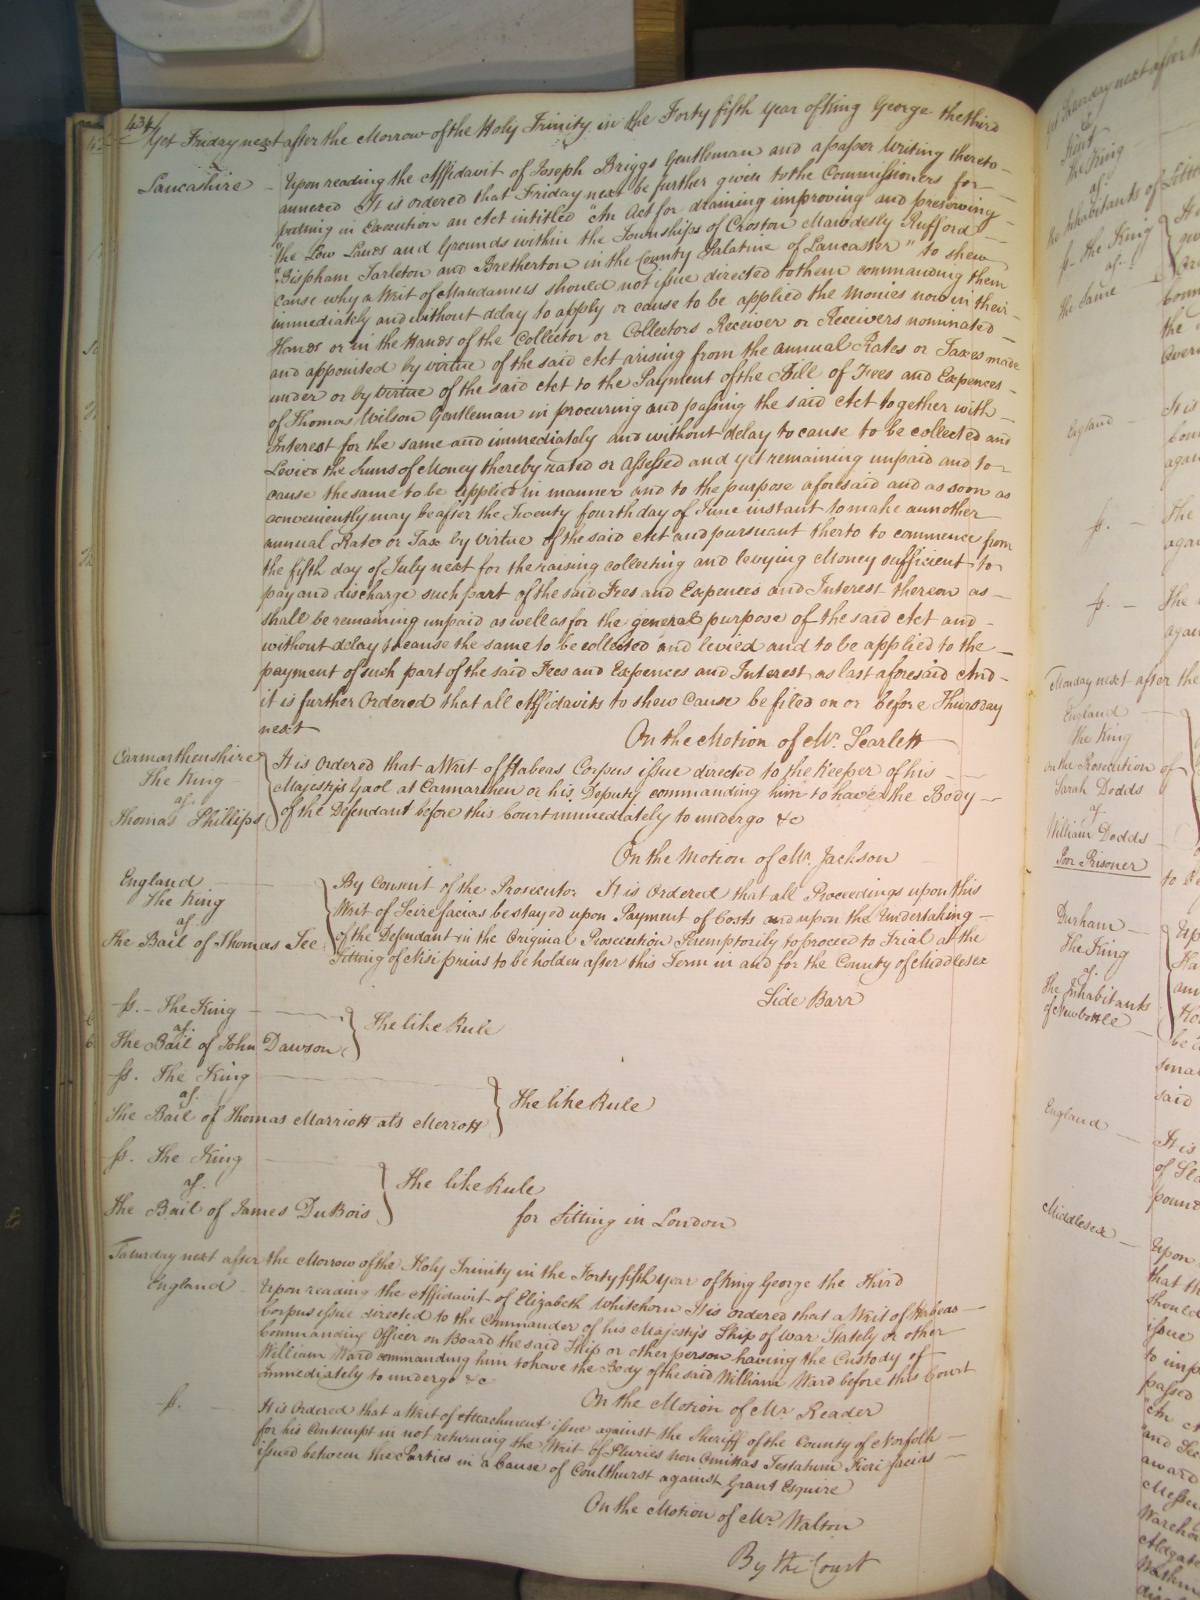 434
Yet Friday next after the Morrow of the Holy Trinity in the Forty fifth Year of King George the third
Lancashire – Upon reading the Affidavit of Joseph Briggs Gentleman and a paper Writing thereto
annexed It is ordered that Friday next be further given to the Commissioners for
putting in Execution an Act intitled "An Act for draining improving and preserving
"the Low Lands and Grounds within the Townships of Croston Mawdesly Rufford
"Bispham Tarleton and Bretherton in the County Palatine of Lancaster" to shew
cause why a Writ of Mandamus should not issue directed to them commanding them
immediately and without delay to apply or cause to be applied the Monies now in their
Hands or in the Hands of the Collector or Collectors Receiver or Receivers nominated
and appointed by virtue of the said Act arising from the annual Rates or Taxes made
under or by virtue of the said Act to the Payment of the Bill of Fees and Expences
of Thomas Wilson Gentleman in procuring and passing the said Act together with
Interest for the same and immediately and without delay to cause to be collected and
Levied the Sums of Money thereby rated or assessed and yet remaining unpaid and to
cause the same to be applied in manner and to the purpose aforesaid and as soon as
conveniently may be after the Twenty fourth day of June instant to make annother
annual Rate or Tax by virtue of the said Act and pursuant therto to commence from
the fifth day of July next for the raising collecting and levying Money sufficient to
pay and discharge such part of the said Fees and Expences and Interest thereon as
shall be remaining unpaid as well as for the general purpose of the said Act and
without delay to cause the same to be collected and levied and to be applied to the
payment of such part of the said Fees and Expences and Interest as last aforesaid And
it is further Ordered that all Affidavits to shew Cause be filed on or before Thursday
next
On the Motion of Mr. Scarlett
Carmarthenshire
The King
agt.
Thomas Phillips
It is Ordered that a Writ of Habeas Corpus issue directed to the Keeper of his
Majesty's Gaol at Carmarthen or his Deputy commanding him to have the Body
of the Defendant before this Court immediately to undergo &c
On the Motion of Mr. Jackson
England
The King
agt.
the Bail of Thomas Tee
By Consent of the Prosecutor It is Ordered that all Proceedings upon this
Writ of Scire facias be stayed upon Payment of Costs and upon the Undertaking
of the Defendant in the Original Prosecution Peremptorily to proceed to Trial at the
Sitting of Nisi prius to be holden after this Term in and for the County of Middlesex
Side Barr
ss. – The King
agt.
The Bail of John Dawson
The like Rule
ss. The King
agt.
The Bail of Thomas Marriott als Merrott
The like Rule
ss. The King
agt.
the Bail of James DuBois
The like Rule
for Sitting in London
Saturday next after the Morrow of the Holy Trinity in the Forty fifth year of King George the Third
England Upon reading the Affidavit of Elizabeth Whitehorn It is ordered that a Writ of Habeas
Corpus issue directed to the Commander of his Majesty's Ship of War Stately or other
Commanding Officer on Board the said Ship or other person having the Custody of
William Ward commanding him to have the Body of the said William Ward before this Court
immediately to undergo &c
On the Motion of Mr. Reader
ss. It is Ordered that a Writ of Attachment issue against the Sheriff of the County of Norfolk
for his Contempt in not returning the Writ of Pluries Non Omittas Testatum Fieri facias
issued between the Parties in a Cause of Coulthurst against Grant Esquire
On the Motion of Mr. Walton
By the Court
Kent
The King
agt.
the Inhabitants of
ss. The King
agt.
the Same
England
It is
again
ss. – The
again
ss. – the
again
Monday next after the
England
the King
on the Prosecution of
Sarah Dodds
agt.
William Dodds
Poor Prisoner
to
Durham
The King
agt.
the Inhabitants
of Newbottle
be
said
England
It is
of
Middlesex
Upon
that the
should
issue
to
passed
"An
"and
award